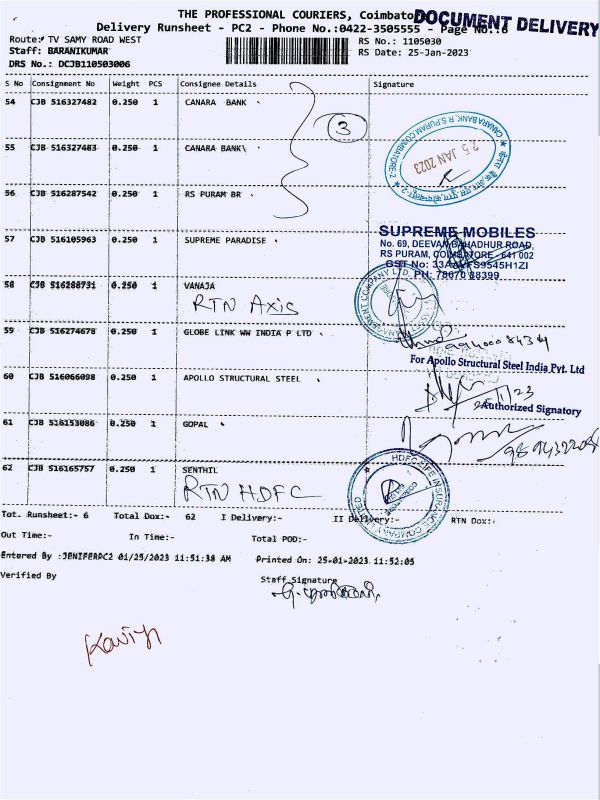 THE PROFESSIONAL COURIERS, Coimbato
DOCUMENT DELIVERY
Delivery Runsheet - PC2 - Phone No.:0422-3505555 - Page No.:6
Route:* TV SAMY ROAD WEST
RS No.: 1105030
Staff: BARANIKUMAR
RS Date: 25-Jan-2023
DRS No.: DCJB110503006
S No Consignment No Weight PCS Consignee Details Signature
54 CJB 516327482 0.250 1 CANARA BANK
3
55 CJB 516327483 0.250 1 CANARA BANK\
CANARA BANK, R S PURAM COIMBATORE-2
25 JAN 2023
56 CJB 516287542 0.250 1 RS PURAM BR
57 CJB 516105963 0.250 1 SUPREME PARADISE
SUPREME MOBILES
No. 69, DEEVAN BAHADHUR ROAD,
RS PURAM, COIMBATORE - 641 002
PH: 78670 88399
58 CJB 516288731 0.250 1 VANAJA
RTN Axis
59 CJB 516274678 0.250 1 GLOBE LINK WW INDIA P LTD
For Apollo Structural Steel India Pvt. Ltd
60 CJB 516066098 0.250 1 APOLLO STRUCTURAL STEEL
Authorized Signatory
61 CJB 516153086 0.250 1 GOPAL
62 CJB 516165757 0.250 1 SENTHIL
RTN HDFC
HDFC LIFE INSURANCE COMPANY LIMITED
Tot. Runsheet:- 6 Total Dox:- 62 I Delivery:- II Delivery:- RTN Dox:
Out Time:- In Time:- Total POD:-
Entered By :JENIFERPC2 01/25/2023 11:51:38 AM Printed On: 25-01-2023 11:52:05
Verified By
Staff Signature